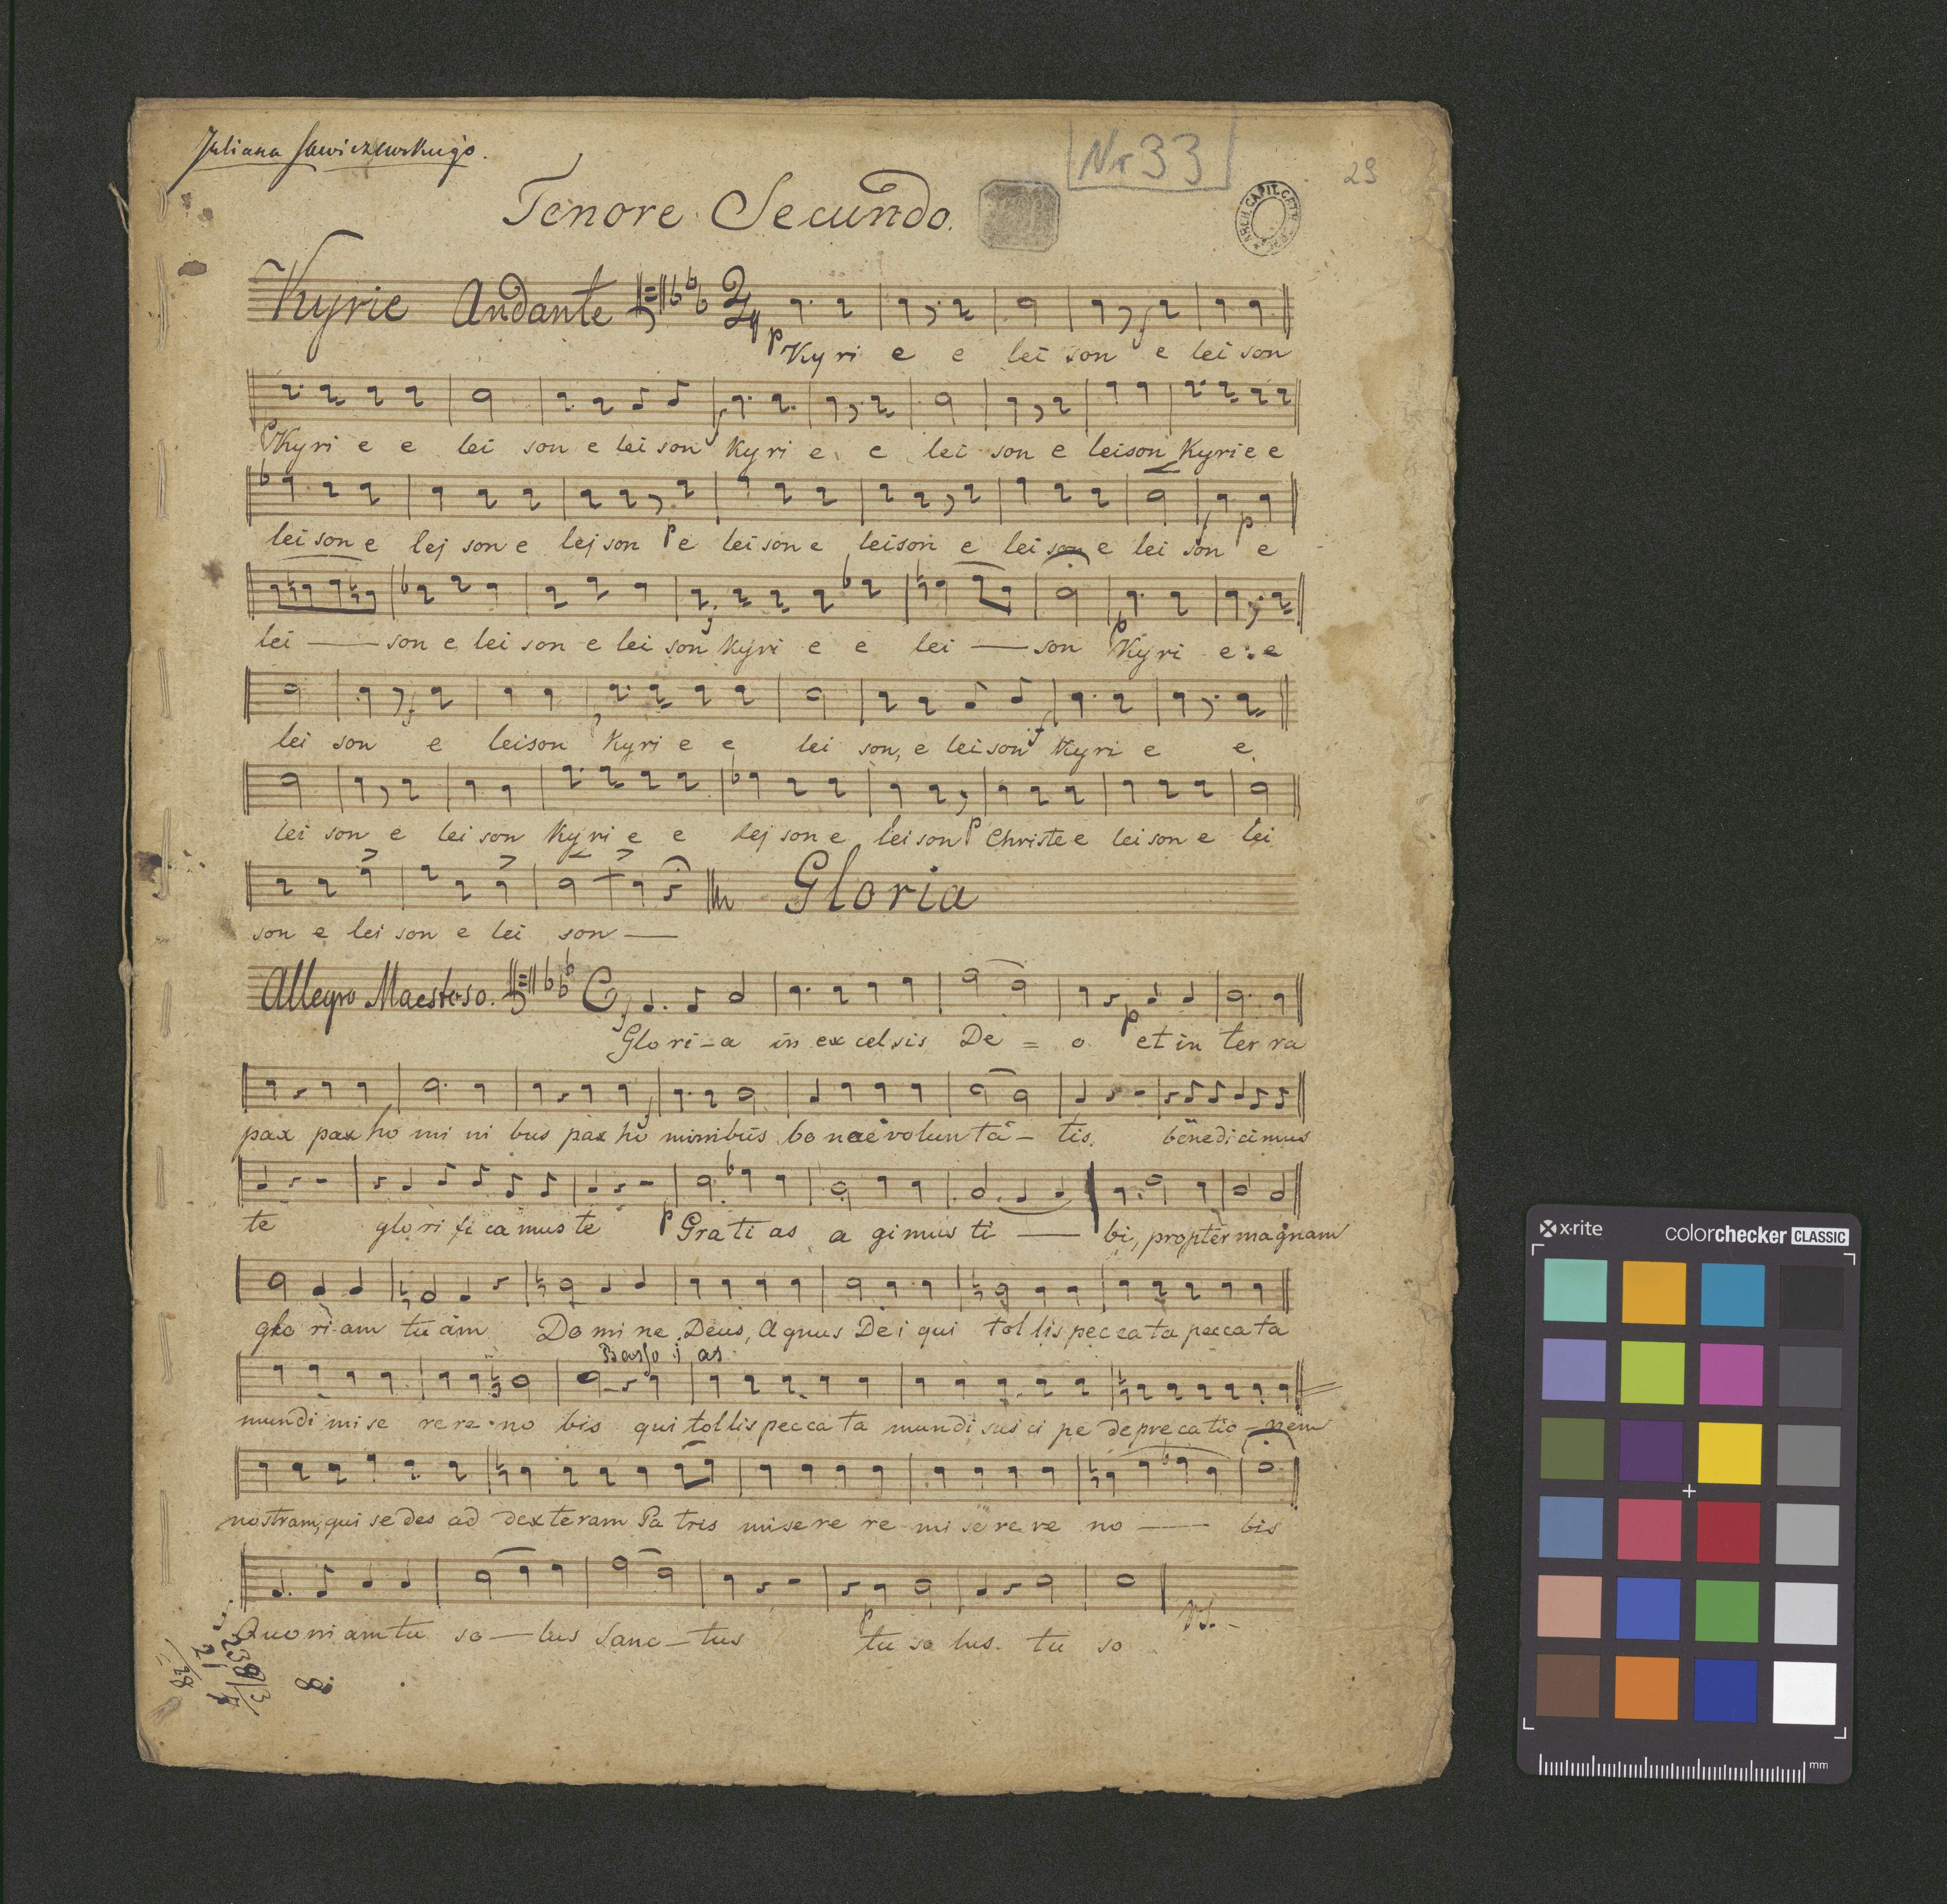 Juliana Sawiczewskiego.
Nr 33
Tenore Secundo.
Kyrie Andante
p Kyri e e lei son e lei son
p Kyri e e lei son e lei son Kyri e e lei son e leison Kyrie e
lei son e lej son e lej son p e lei son e leison e lei son e lei son p e
lei — son e lei son e lei son Kyri e e lei — son Kyri e e
lei son e leison Kyri e e lei son, e leison f Kyri e e
lei son e lei son Kyri e e lej son e leison p Christe e leison e lei
son e lei son e lei son —
Gloria
Allegro Maestoso. C
Glo ri - a in ex cel sis De = o p et in ter ra
pax pax ho mi ni bus pax ho minibus bo nae volun ta - tis. benedicimus
te glo ri fi ca mus te p Gra ti as a gimus ti — bi, propter magnam
glo ri am tu am Do mi ne Deus, Agnus Dei qui tol lis pec ca ta peccata
Basso i as
mundi mi se re re no bis qui tollis pecca ta mundi sus ci pe deprecatio - nem
nostram, qui se des ad dexteram Pa tris mise re re mi se re re no — bis
Quoni am tu so — lus Sanc - tus tu so lus tu so
VS. -
8.
x-rite
colorchecker CLASSIC
mm